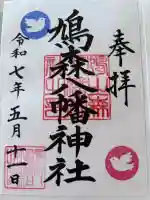 奉拝
鳩森八幡神社
令和七年五月十一日